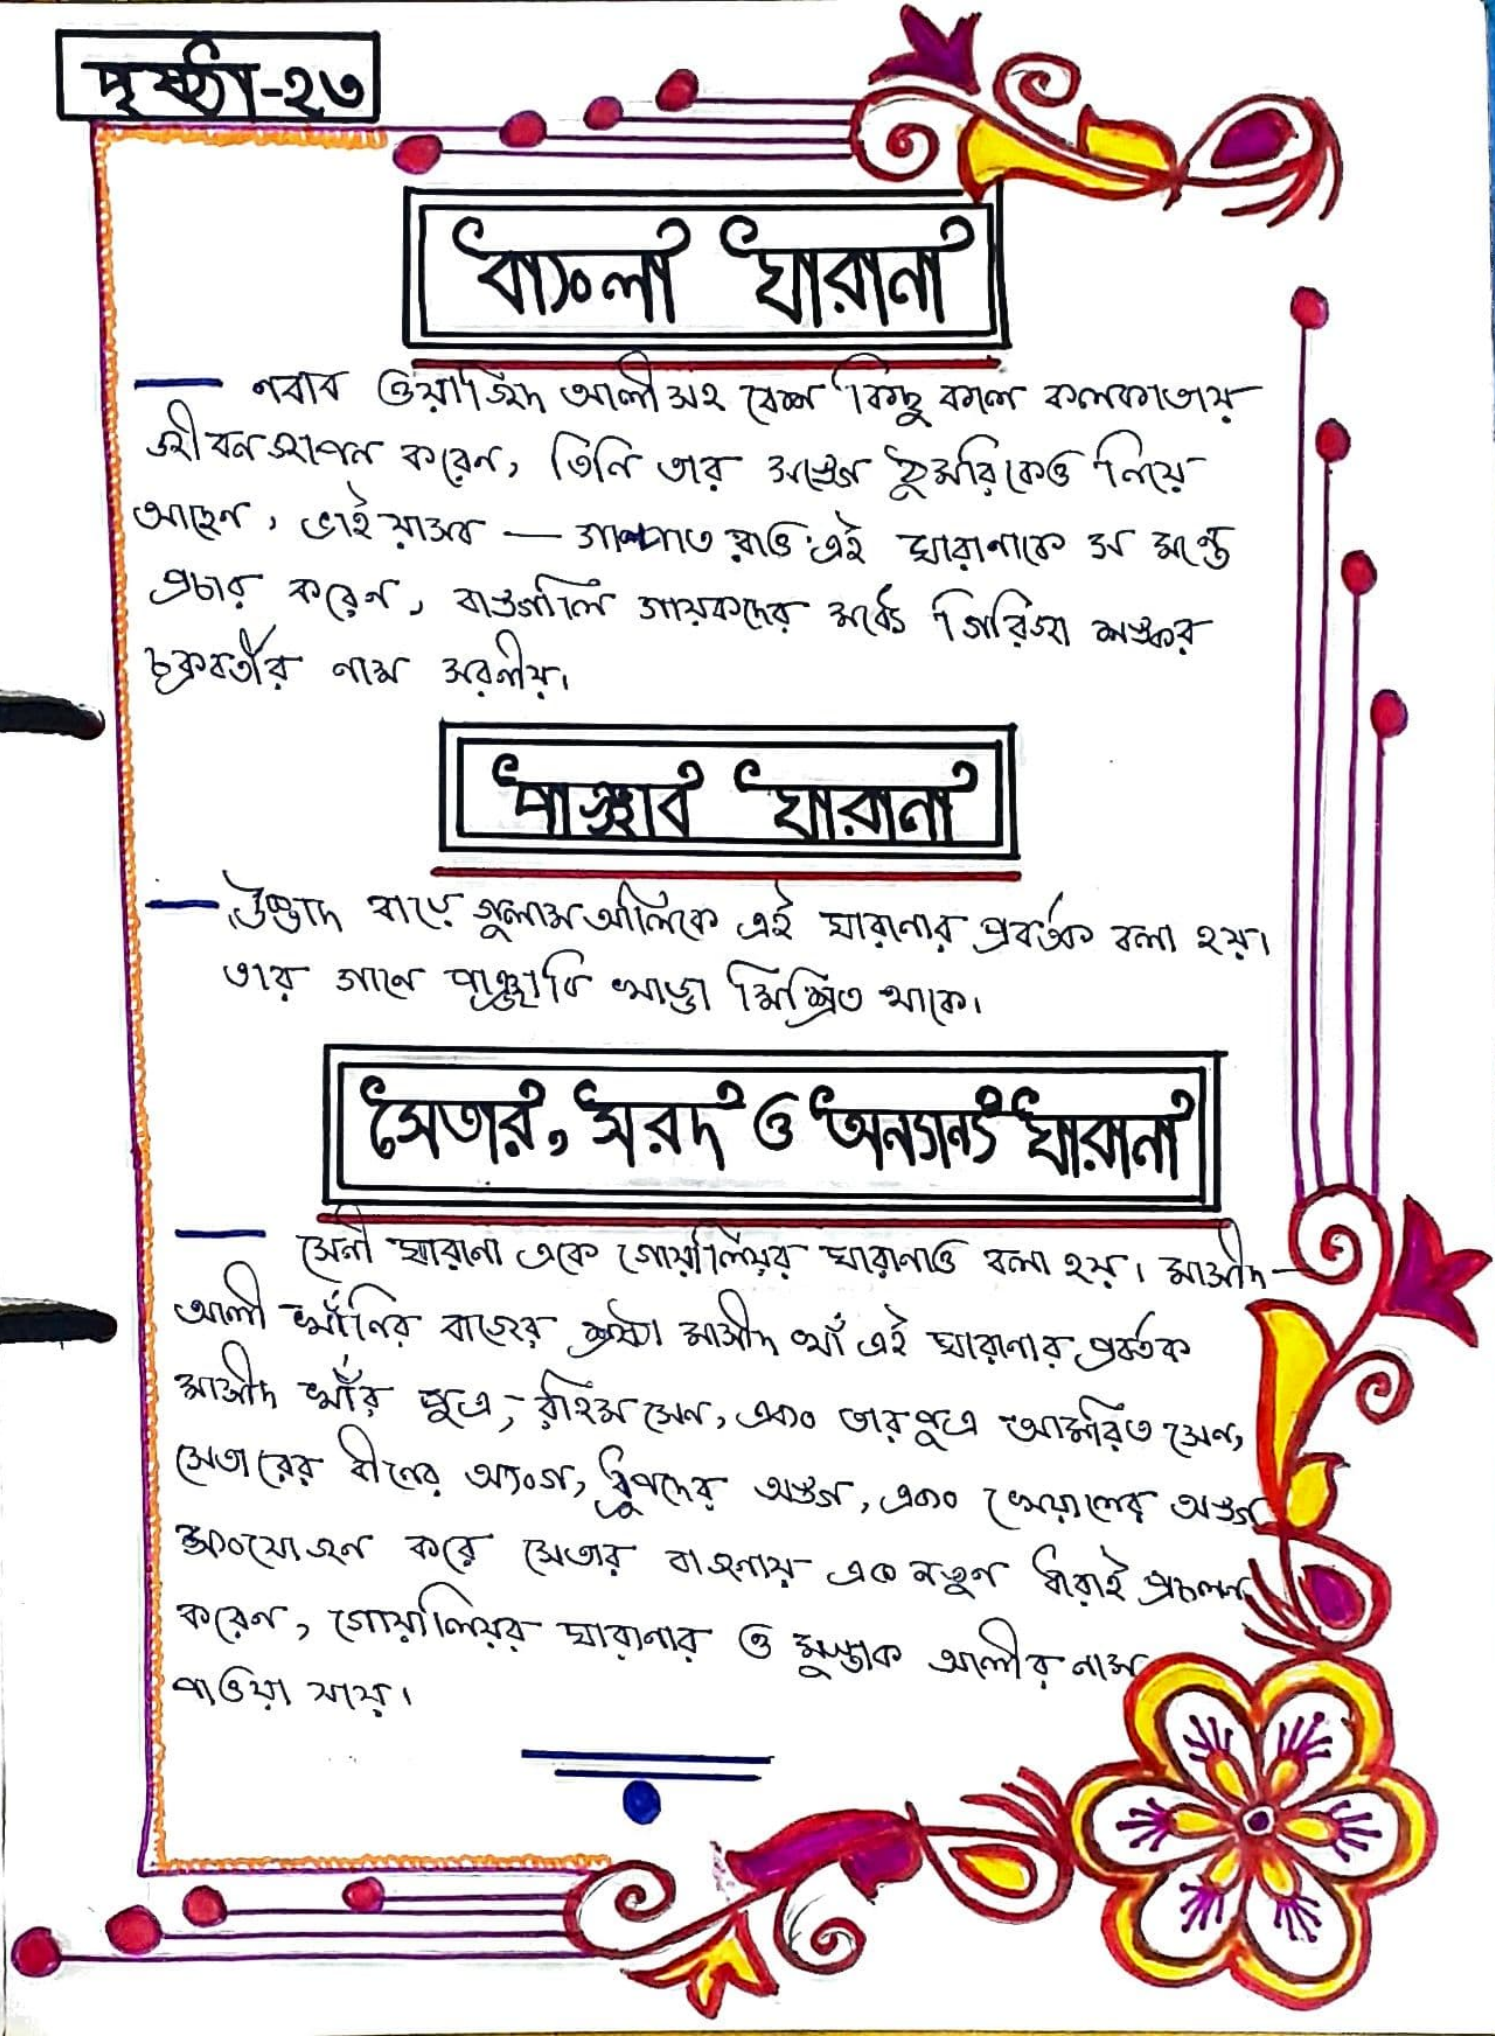 পৃষ্ঠা-২৩
বাংলা ঘারানা
নবাব ওয়াজিদ আলী সহ বেশ কিছু কাল কলকাতায়
জীবনজাপন করেন, তিনি তার সঙ্গে ঠুমরিকেও নিয়ে
আছেন, ভাইয়াসব — গণপাত রাও এই ঘারানাকে
প্রচার করেন, বাঙ্গালি গায়কদের মধ্যে গিরিজা শঙ্কর
চক্রবর্তীর নাম সরনীয়।
পাঞ্জাব ঘারানা
উস্তাদ বাড়ে গুলাম আলিকে এই ঘারানার প্রবর্তক বলা হয়।
তার গানে পাঞ্জাবি মিশ্রিত থাকে।
সেতার, সরদ ও অন্যান্য ঘারানা
সেনী ঘারানা একে গোয়ালিয়র ঘারানাও বলা হয়। মাসীদ
আলী খাঁনির বাজের শ্রষ্টা মাসীদ খাঁ এই ঘারানার প্রবর্তক
মাসীদ খাঁর পুত্র, রহিম সেন, এবং তার পুত্র আমরিত সেন,
সেতারের বীনের অ্যংগ, ধ্রুপদের অঙ্গ, এবং খেয়ালের অঙ্গ
সংযোজন করে সেতার বাজনায় এক নতুন ধারাই প্রচলন
করেন, গোয়ালিয়র ঘারানার ও মুস্তাক আলীর নাম
পাওয়া যায়।